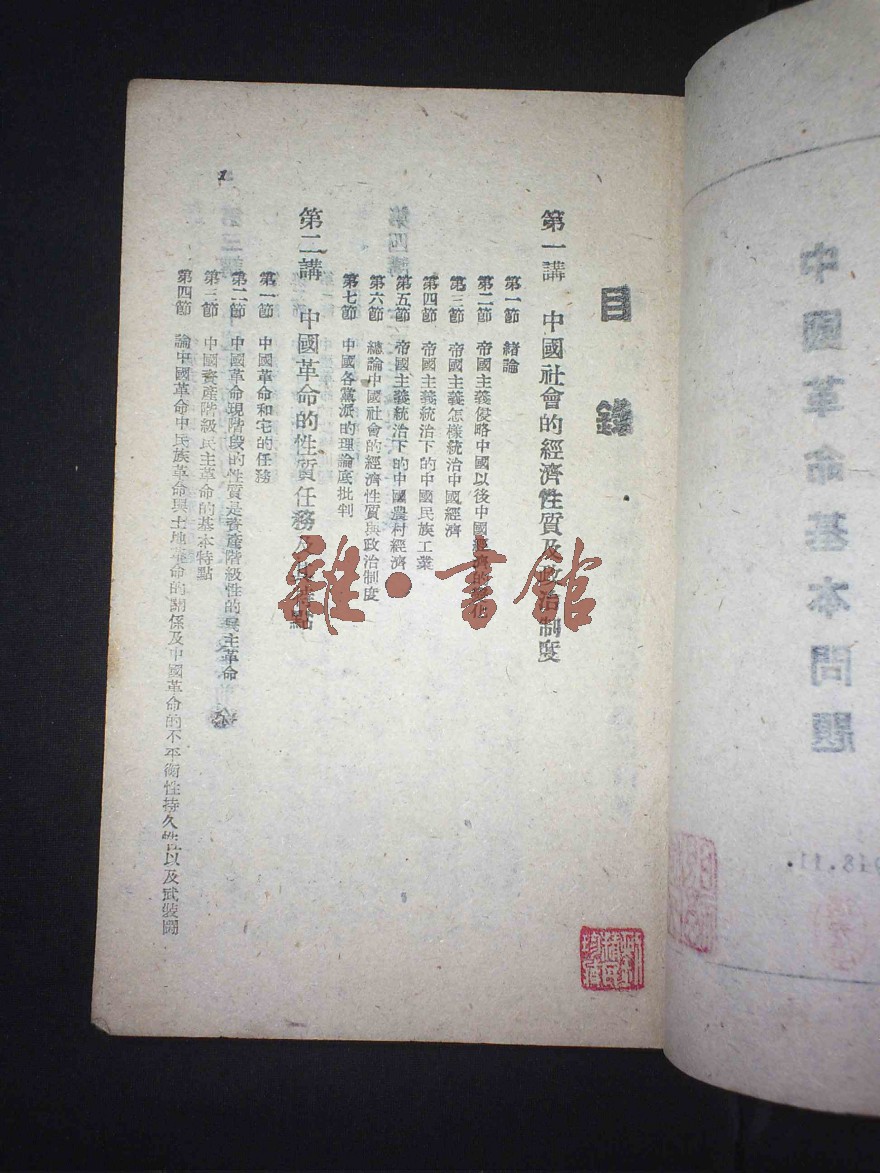 目錄
第一講 中國社會的經濟性質及政治制度
第一節 緒論
第二節 帝國主義侵略中國以後中國經濟的變化
第三節 帝國主義怎樣統治中國經濟
第四節 帝國主義統治下的中國民族工業
第五節 帝國主義統治下的中國農村經濟
第六節 總論中國社會的經濟性質與政治制度
第七節 中國各黨派的理論底批判
第二講 中國革命的性質任務及其特點
第一節 中國革命和它的任務
第二節 中國革命現階段的性質是資產階級性的民主革命
第三節 中國資產階級民主革命的基本特點
第四節 論中國革命中民族革命與土地革命的關係及中國革命的不平衡性持久性以及武裝鬭
雜·書館
中國革命基本問題
48.11.